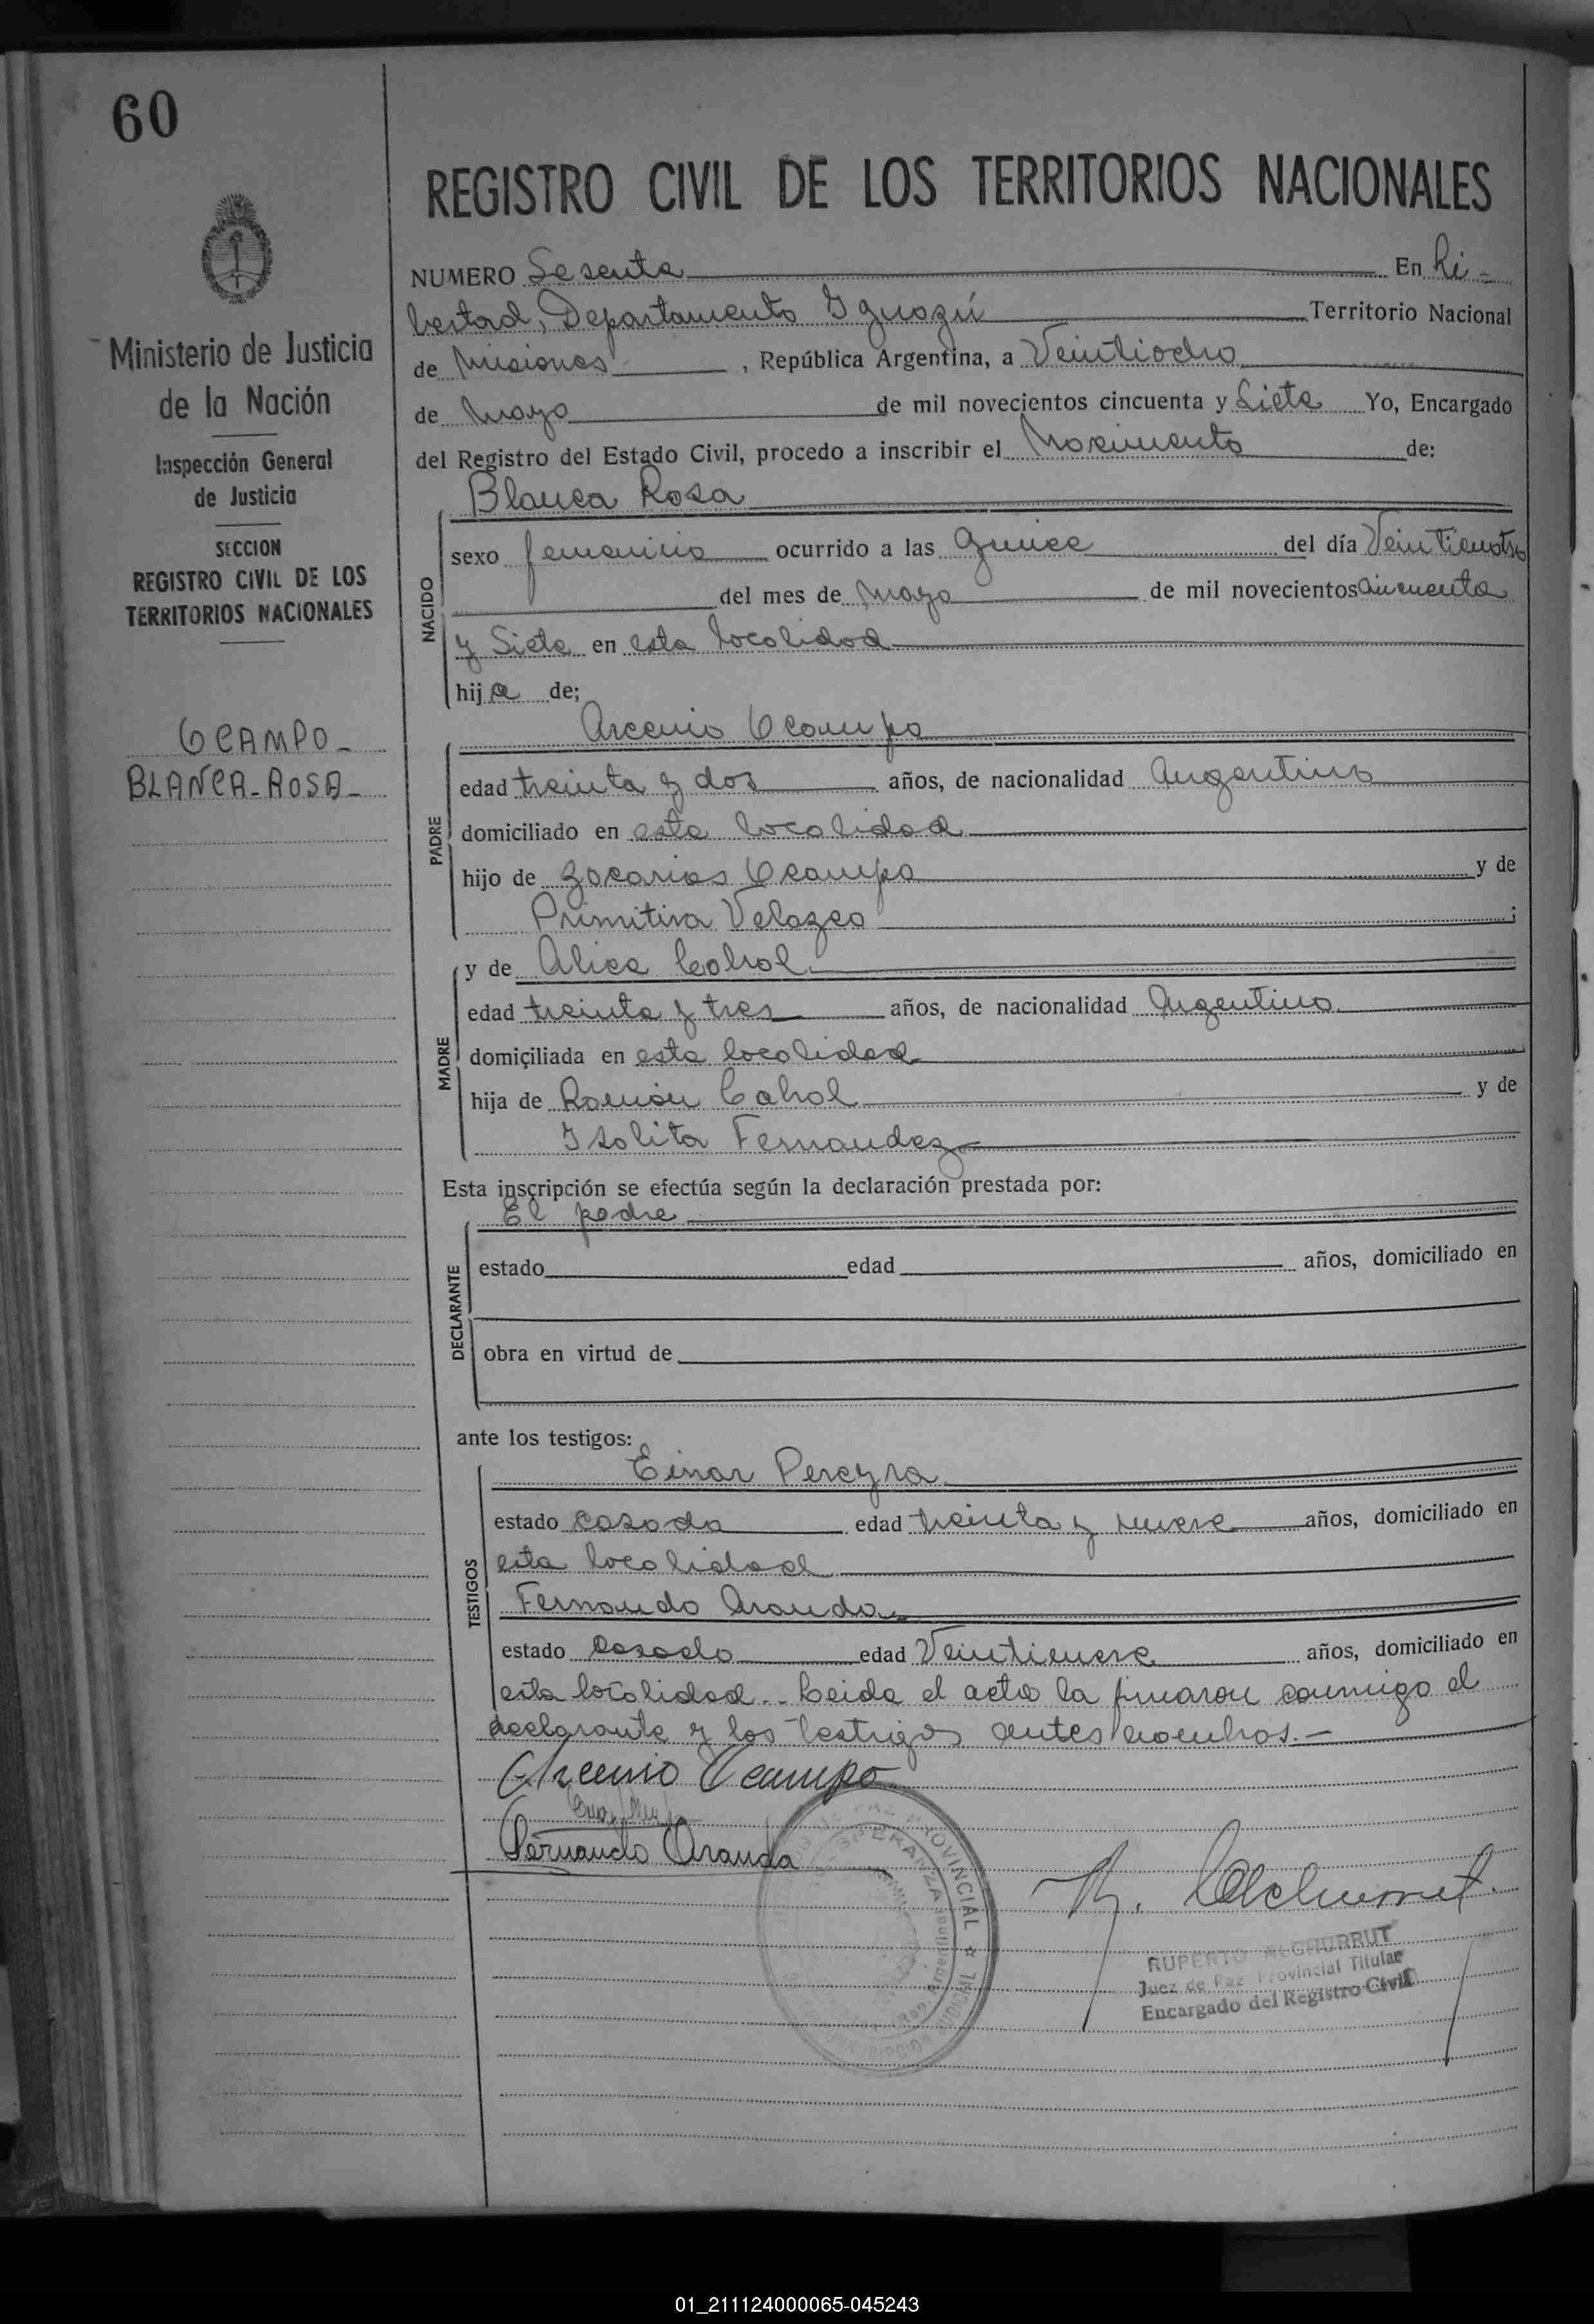 60
REGISTRO CIVIL DE LOS TERRITORIOS NACIONALES
Ministerio de Justicia
de la Nación
Inspección General
de Justicia
SECCION
REGISTRO CIVIL DE LOS
TERRITORIOS NACIONALES
OCAMPO-
BLANCA-ROSA-
NUMERO Sesenta En Li-
bertad, Departamento Iguazú Territorio Nacional
de Misiones, República Argentina, a Veintiocho
de Mayo de mil novecientos cincuenta y Siete Yo, Encargado
del Registro del Estado Civil, procedo a inscribir el Nacimiento de:
Blanca Rosa
NACIDO
sexo femenino ocurrido a las quince del día Veinticuatro
del mes de Mayo de mil novecientos cincuenta
y Siete en esta localidad
hija de;
Arcenio Ocampo
PADRE
edad treinta y dos años, de nacionalidad Argentino
domiciliado en esta localidad
hijo de Zacarias Ocampo y de
Primitiva Velazco ;
MADRE
y de Alice Cabral
edad treinta y tres años, de nacionalidad Argentina
domiciliada en esta localidad
hija de Ramón Cabral y de
Isolita Fernandez
Esta inscripción se efectúa según la declaración prestada por:
El padre
DECLARANTE
estado edad años, domiciliado en
obra en virtud de
ante los testigos:
Einar Pereyra
TESTIGOS
estado casado edad treinta y nueve años, domiciliado en
esta localidad
Fernando Aranda
estado Casado edad Veintinueve años, domiciliado en
esta localidad.- Leida el acta la firmaron conmigo el
declarante y los testigos antes nombros.-
Arcenio Ocampo
Fernando Aranda
R. Alchurrut
PAZ PROVINCIAL
ESPERANZA
RUPERTO ALCHURRUT
Juez de Paz Provincial Titular
Encargado del Registro Civil
01_211124000065-045243